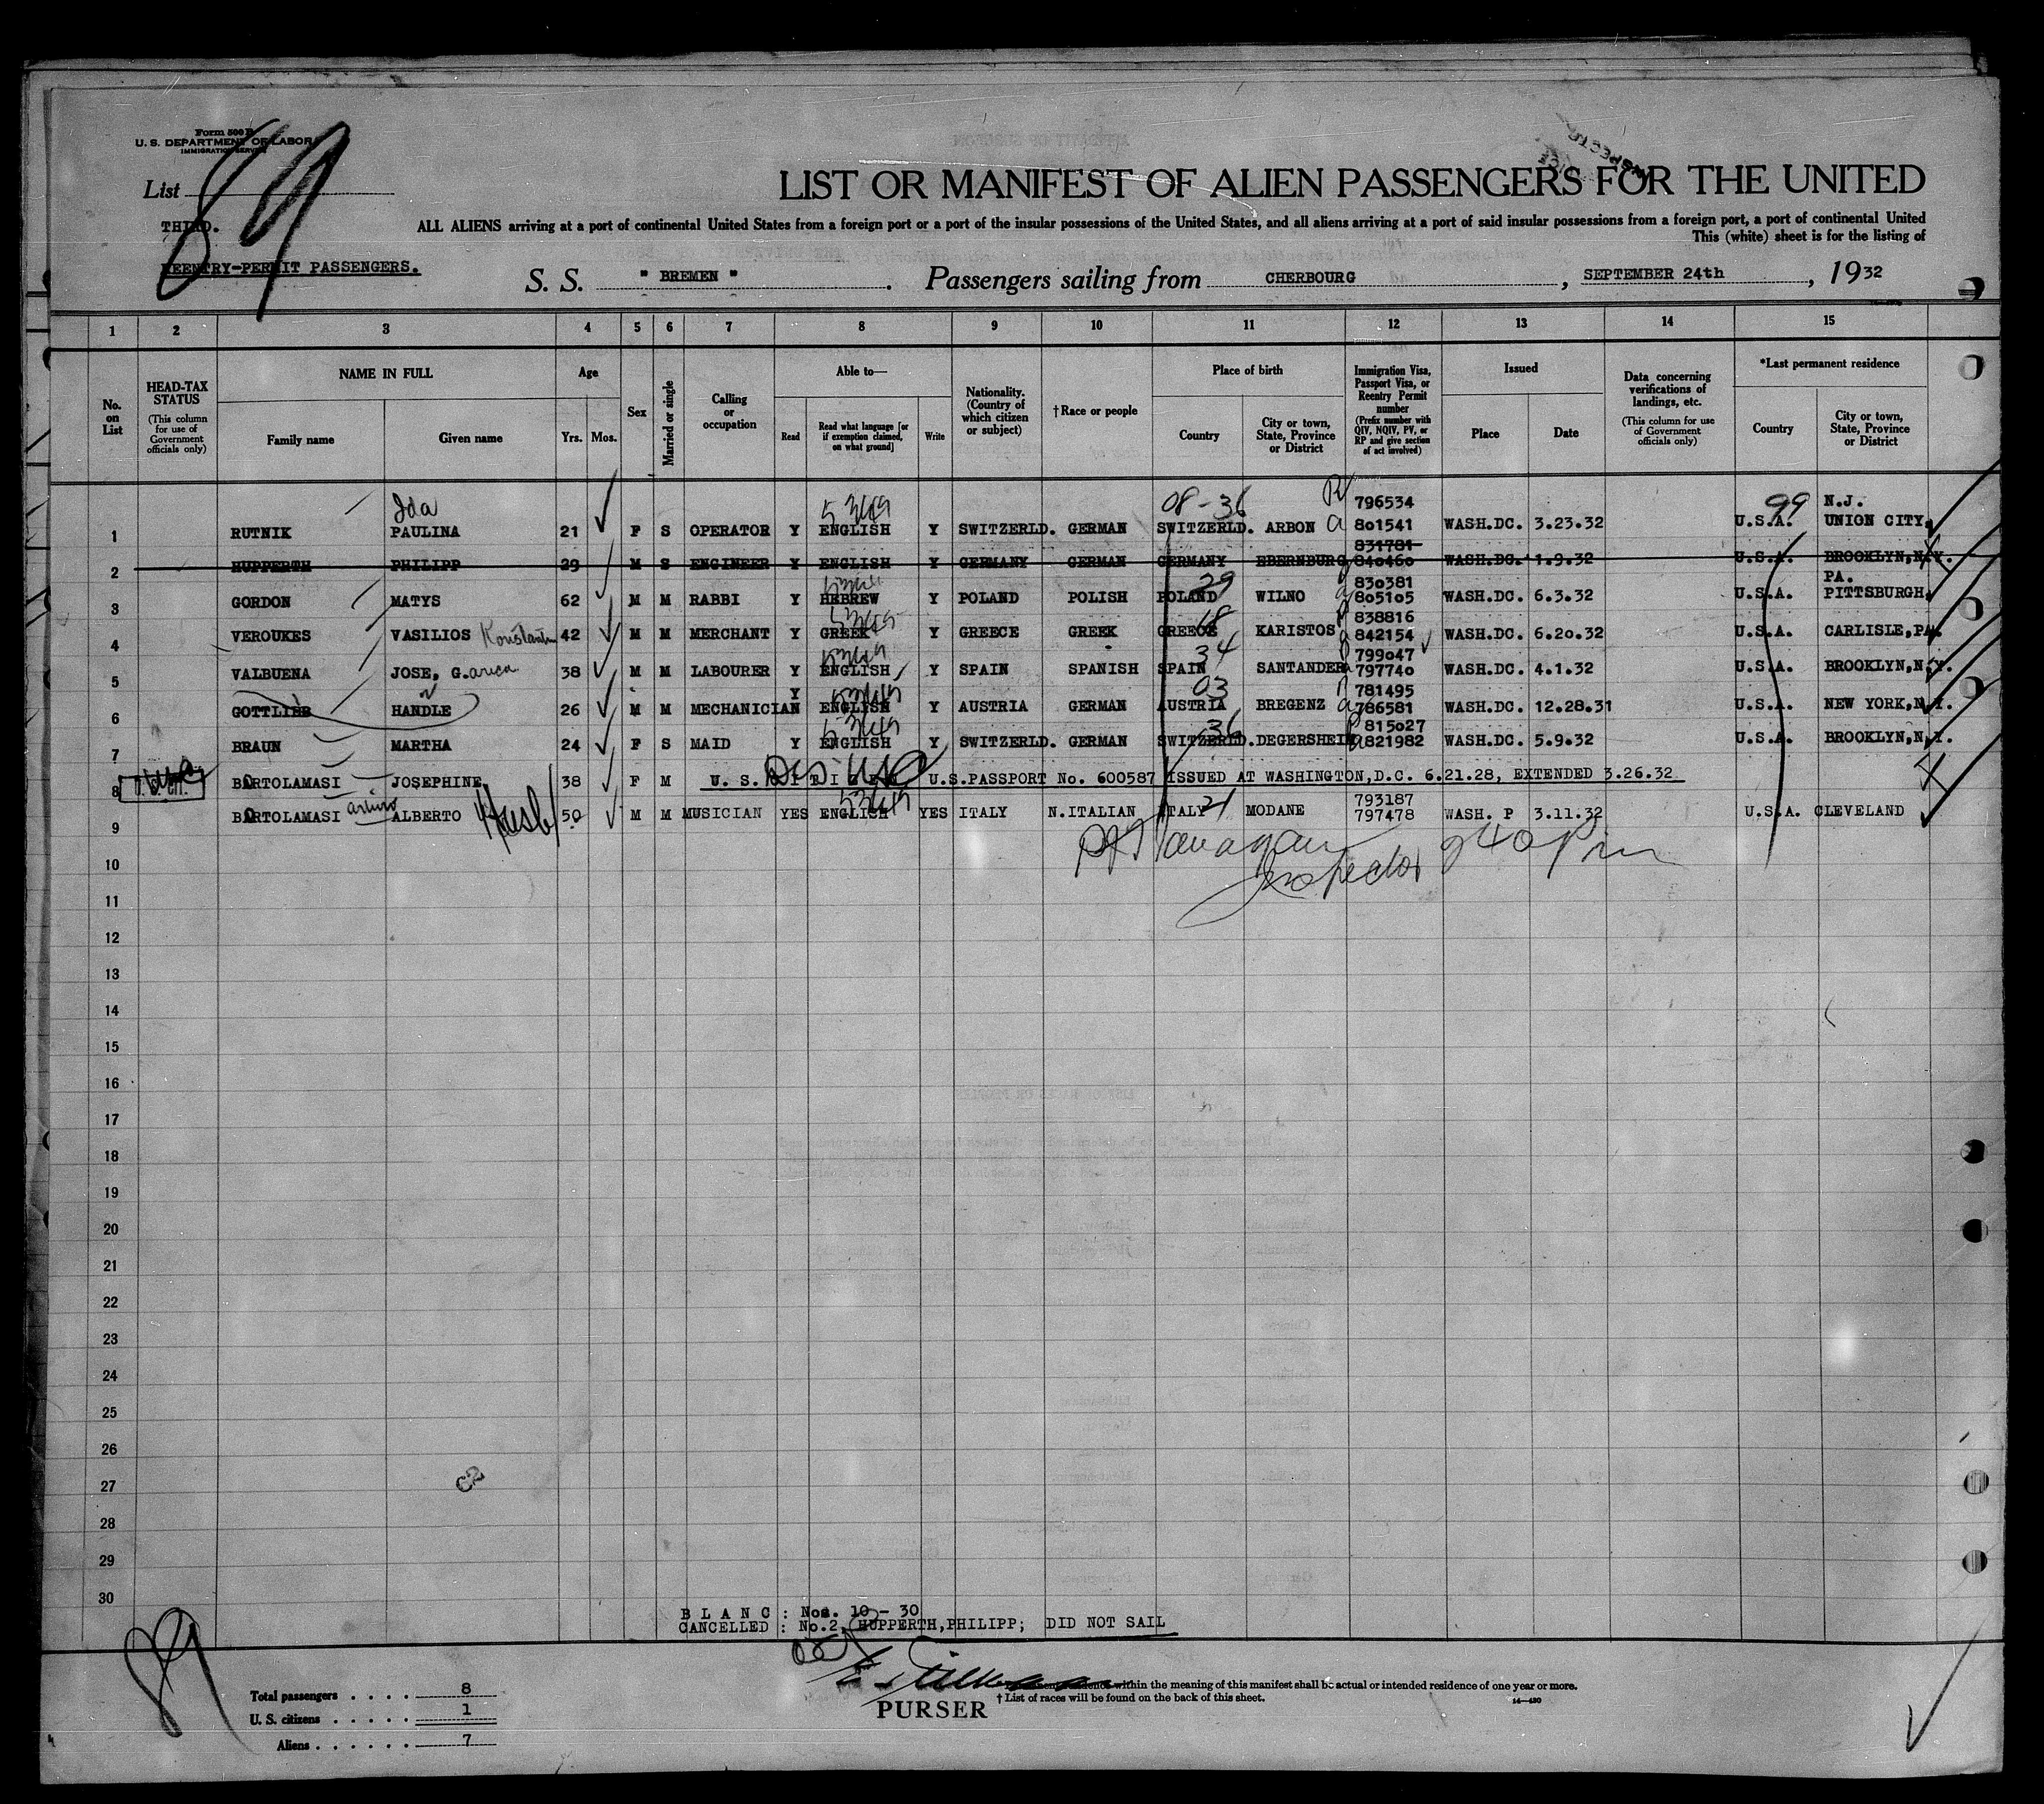 Form 500 B
U. S. DEPARTMENT OF LABOR
IMMIGRATION SERVICE
List 89
THIRD.
REENTRY-PERMIT PASSENGERS.
LIST OR MANIFEST OF ALIEN PASSENGERS FOR THE UNITED
ALL ALIENS arriving at a port of continental United States from a foreign port or a port of the insular possessions of the United States, and all aliens arriving at a port of said insular possessions from a foreign port, a port of continental United
This (white) sheet is for the listing of
S. S. "BREMEN". Passengers sailing from CHERBOURG, SEPTEMBER 24th, 1932
1 2 3 4 5 6 7 8 9 10 11 12 13 14 15
No. on List
HEAD-TAX STATUS
(This column for use of Government officials only)
NAME IN FULL
Family name
Given name
Age
Yrs. Mos.
Sex
Married or single
Calling or occupation
Able to—
Read
Read what language [or if exemption claimed, on what ground]
Write
Nationality. (Country of which citizen or subject)
†Race or people
Place of birth
Country
City or town, State, Province or District
Immigration Visa, Passport Visa, or Reentry Permit number
(Prefix number with QIV, NQIV, PV, or RP and give section of act involved)
Issued
Place
Date
Data concerning verifications of landings, etc.
(This column for use of Government officials only)
*Last permanent residence
Country
City or town, State, Province or District
Ida 53649 08-36 796534 99 N.J.
1 RUTNIK PAULINA 21 F S OPERATOR Y ENGLISH Y SWITZERLD. GERMAN SWITZERLD. ARBON 801541 WASH.DC. 3.23.32 U.S.A. UNION CITY,
831781
2 HUPPERTH PHILIPP 29 M S ENGINEER Y ENGLISH Y GERMANY GERMAN GERMANY EBERNBURG 840460 WASH.DC. 1.9.32 U.S.A. BROOKLYN,N.Y.
29 830381 PA.
3 GORDON MATYS 62 M M RABBI Y HEBREW Y POLAND POLISH POLAND WILNO 805105 WASH.DC. 6.3.32 U.S.A. PITTSBURGH,
18 838816
4 VEROUKES VASILIOS Konstantin 42 M M MERCHANT Y GREEK Y GREECE GREEK GREECE KARISTOS 842154 WASH.DC. 6.20.32 U.S.A. CARLISLE,PA.
34 799047
5 VALBUENA JOSE, G.arica 38 M M LABOURER Y ENGLISH Y SPAIN SPANISH SPAIN SANTANDER 797740 WASH.DC. 4.1.32 U.S.A. BROOKLYN,N.Y.
Y 03 781495
6 GOTTLIEB HANDLE 26 M M MECHANICIAN ENGLISH Y AUSTRIA GERMAN AUSTRIA BREGENZ 786581 WASH.DC. 12.28.31 U.S.A. NEW YORK,N.Y.
53649 36 815027
7 BRAUN MARTHA 24 F S MAID Y ENGLISH Y SWITZERLD. GERMAN SWITZERLD. DEGERSHEIM 821982 WASH.DC. 5.9.32 U.S.A. BROOKLYN,N.Y.
8 BARTOLAMASI JOSEPHINE 38 F M U. S. CITIZEN U.S.PASSPORT No. 600587 ISSUED AT WASHINGTON,D.C. 6.21.28, EXTENDED 3.26.32
53649 21 793187
9 BARTOLAMASI arturo ALBERTO Husb 50 M M MUSICIAN YES ENGLISH YES ITALY N.ITALIAN ITALY MODANE 797478 WASH. P 3.11.32 U.S.A. CLEVELAND
Inspector
10
11
12
13
14
15
16
17
18
19
20
21
22
23
24
25
26
27
28
29
30
BLANC : Nos. 10 - 30
CANCELLED : No.2, HUPPERTH,PHILIPP; DID NOT SAIL
89
Total passengers . . . . 8
U. S. citizens . . . . . 1
Aliens . . . . . . 7
PURSER
within the meaning of this manifest shall be actual or intended residence of one year or more.
† List of races will be found on the back of this sheet.
14—430